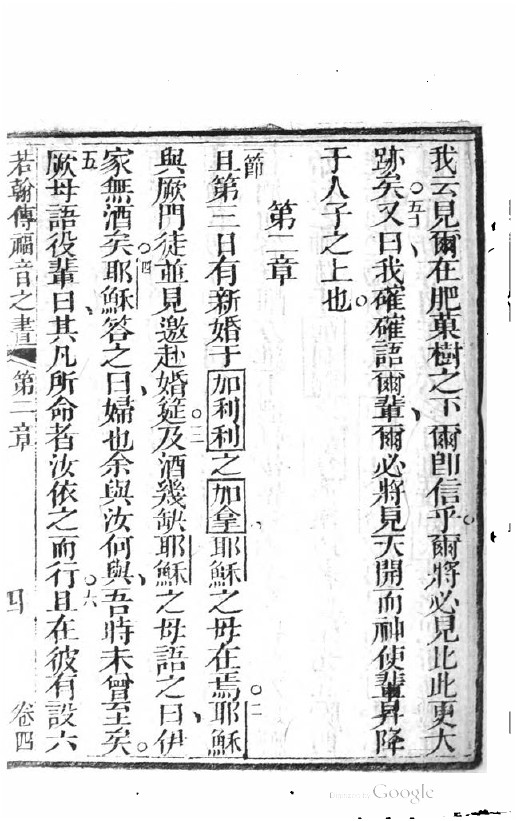 我云見爾在肥菓樹之下爾卽信乎爾將必見比此更大
跡矣○五十一又曰我確確語爾輩爾必將見天開而神使輩昇降
于人子之上也○
第二章
一節
且第三日有新婚于加利利之加拿耶穌之母在焉○二耶穌
與厥門徒並見邀赴婚筵○三及酒幾缺耶穌之母語之曰伊
家無酒矣○四耶穌答之曰婦也余與汝何與吾時未曾至矣○
五厥母語役輩曰其凡所命者汝依之而行○六且在彼有設六
若翰傳福音之書 第二章 四 卷四
Digitized by Google